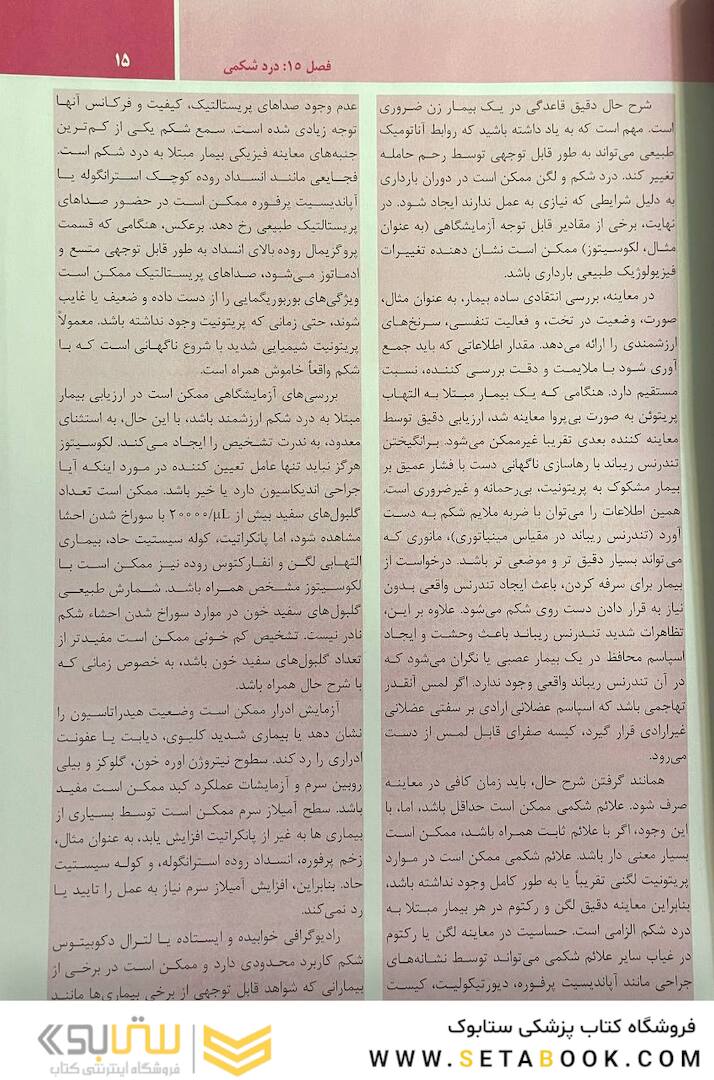 فصل ۱۵: درد شکمی
۱۵
شرح حال دقیق قاعدگی در یک بیمار زن ضروری
است. مهم است که به یاد داشته باشید که روابط آناتومیک
طبیعی می‌تواند به طور قابل توجهی توسط رحم حامله
تغییر کند. درد شکم و لگن ممکن است در دوران بارداری
به دلیل شرایطی که نیازی به عمل ندارند ایجاد شود. در
نهایت، برخی از مقادیر قابل توجه آزمایشگاهی (به عنوان
مثال، لکوسیتوز) ممکن است نشان دهنده تغییرات
فیزیولوژیک طبیعی بارداری باشد.
در معاینه، بررسی انتقادی ساده بیمار، به عنوان مثال،
صورت، وضعیت در تخت، و فعالیت تنفسی، سرنخ‌های
ارزشمندی را ارائه می‌دهد. مقدار اطلاعاتی که باید جمع
آوری شود با ملایمت و دقت بررسی کننده، نسبت
مستقیم دارد. هنگامی که یک بیمار مبتلا به التهاب
پریتوئن به صورت بی‌پروا معاینه شد، ارزیابی دقیق توسط
معاینه کننده بعدی تقریبا غیرممکن می‌شود. برانگیختن
تندرنس ریباند با رهاسازی ناگهانی دست با فشار عمیق بر
بیمار مشکوک به پریتونیت، بی‌رحمانه و غیرضروری است.
همین اطلاعات را می‌توان با ضربه ملایم شکم به دست
آورد (تندرنس ریباند در مقیاس مینیاتوری)، مانوری که
می‌تواند بسیار دقیق تر و موضعی تر باشد. درخواست از
بیمار برای سرفه کردن، باعث ایجاد تندرنس واقعی بدون
نیاز به قرار دادن دست روی شکم می‌شود. علاوه بر این،
تظاهرات شدید تندرنس ریباند باعث وحشت و ایجاد
اسپاسم محافظ در یک بیمار عصبی یا نگران می‌شود که
در آن تندرنس ریباند واقعی وجود ندارد. اگر لمس آنقدر
تهاجمی باشد که اسپاسم عضلانی ارادی بر سفتی عضلانی
غیرارادی قرار گیرد، کیسه صفرای قابل لمس از دست
می‌رود.
همانند گرفتن شرح حال، باید زمان کافی در معاینه
صرف شود. علائم شکمی ممکن است حداقل باشد، اما، با
این وجود، اگر با علائم ثابت همراه باشد، ممکن است
بسیار معنی دار باشد. علائم شکمی ممکن است در موارد
پریتونیت لگنی تقریباً یا به طور کامل وجود نداشته باشد،
بنابراین معاینه دقیق لگن و رکتوم در هر بیمار مبتلا به
درد شکم الزامی است. حساسیت در معاینه لگن یا رکتوم
در غیاب سایر علائم شکمی می‌تواند توسط نشانه‌های
جراحی مانند آپاندیسیت پرفوره، دیورتیکولیت، کیست
عدم وجود صداهای پریستالتیک، کیفیت و فرکانس آنها
توجه زیادی شده است. سمع شکم یکی از کم‌ترین
جنبه‌های معاینه فیزیکی بیمار مبتلا به درد شکم است.
فجایعی مانند انسداد روده کوچک استرانگوله یا
آپاندیسیت پرفوره ممکن است در حضور صداهای
پریستالتیک طبیعی رخ دهد. برعکس، هنگامی که قسمت
پروگزیمال روده بالای انسداد به طور قابل توجهی متسع و
ادماتوز می‌شود، صداهای پریستالتیک ممکن است
ویژگی‌های بوربوریگمایی را از دست داده و ضعیف یا غایب
شوند، حتی زمانی که پریتونیت وجود نداشته باشد. معمولاً
پریتونیت شیمیایی شدید با شروع ناگهانی است که با
شکم واقعاً خاموش همراه است.
بررسی‌های آزمایشگاهی ممکن است در ارزیابی بیمار
مبتلا به درد شکم ارزشمند باشد، با این حال، به استثنای
معدود، به ندرت تشخیص را ایجاد می‌کند. لکوسیتوز
هرگز نباید تنها عامل تعیین کننده در مورد اینکه آیا
جراحی اندیکاسیون دارد یا خیر باشد. ممکن است تعداد
گلبول‌های سفید بیش از ۲۰۰۰۰/μL با سوراخ شدن احشا
مشاهده شود، اما پانکراتیت، کوله سیستیت حاد، بیماری
التهابی لگن و انفارکتوس روده نیز ممکن است با
لکوسیتوز مشخص همراه باشد. شمارش طبیعی
گلبول‌های سفید خون در موارد سوراخ شدن احشاء شکم
نادر نیست. تشخیص کم خونی ممکن است مفیدتر از
تعداد گلبول‌های سفید خون باشد، به خصوص زمانی که
با شرح حال همراه باشد.
آزمایش ادرار ممکن است وضعیت هیدراتاسیون را
نشان دهد یا بیماری شدید کلیوی، دیابت یا عفونت
ادراری را رد کند. سطوح نیتروژن اوره خون، گلوکز و بیلی
روبین سرم و آزمایشات عملکرد کبد ممکن است مفید
باشد. سطح آمیلاز سرم ممکن است توسط بسیاری از
بیماری ها به غیر از پانکراتیت افزایش یابد، به عنوان مثال،
زخم پرفوره، انسداد روده استرانگوله، و کوله سیستیت
حاد. بنابراین، افزایش آمیلاز سرم نیاز به عمل را تایید یا
رد نمی‌کند.
رادیوگرافی خوابیده و ایستاده یا لترال دکوبیتوس
شکم کاربرد محدودی دارد و ممکن است در برخی از
بیمارانی که شواهد قابل توجهی از برخی بیماری‌ها مانند
فروشگاه کتاب پزشکی ستابوک
WWW.SETABOOK.COM
ستابوک
فروشگاه اینترنتی کتاب